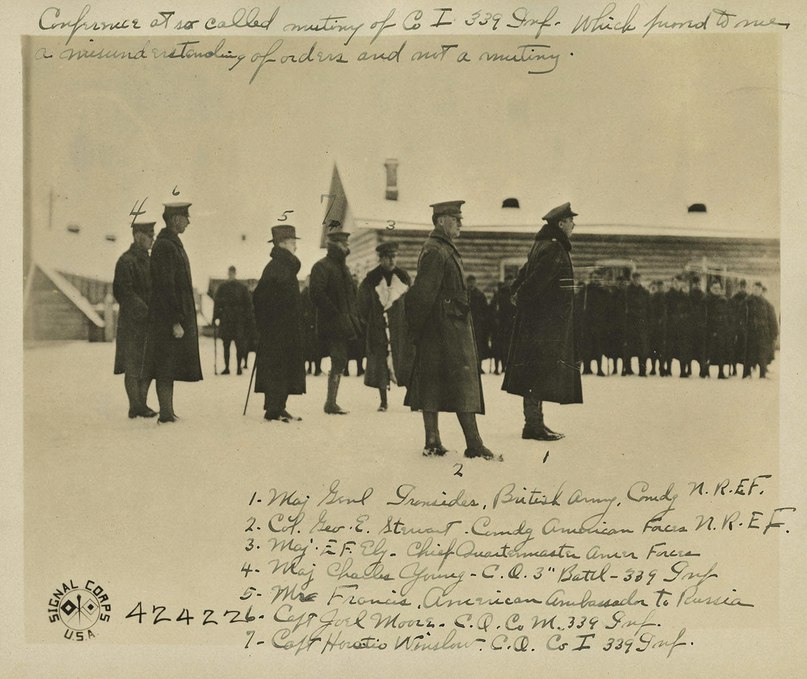 Conference at so called mutiny of Co I 339 Inf. Which proved to me
a misunderstanding of orders and not a mutiny.
4
6
5
7
3
2
1
1- Maj Genl Ironsides, British Army, Comdg N.R.E.F.
2- Col. Geo. E. Stewart - Comdg American Forces N.R.E.F.
3- Maj. E.F. Ely - Chief Quartermaster Amer Forces
4- Maj Charles Young - C.O. 3" Batd - 339 Inf
5- Francis, American Ambassador to Russia
6- Capt Joel Moore - C.O. Co M. 339 Inf.
7- Capt Horatio Winslow - C.O. Co I 339 Inf.
SIGNAL CORPS
U.S.A.
42422